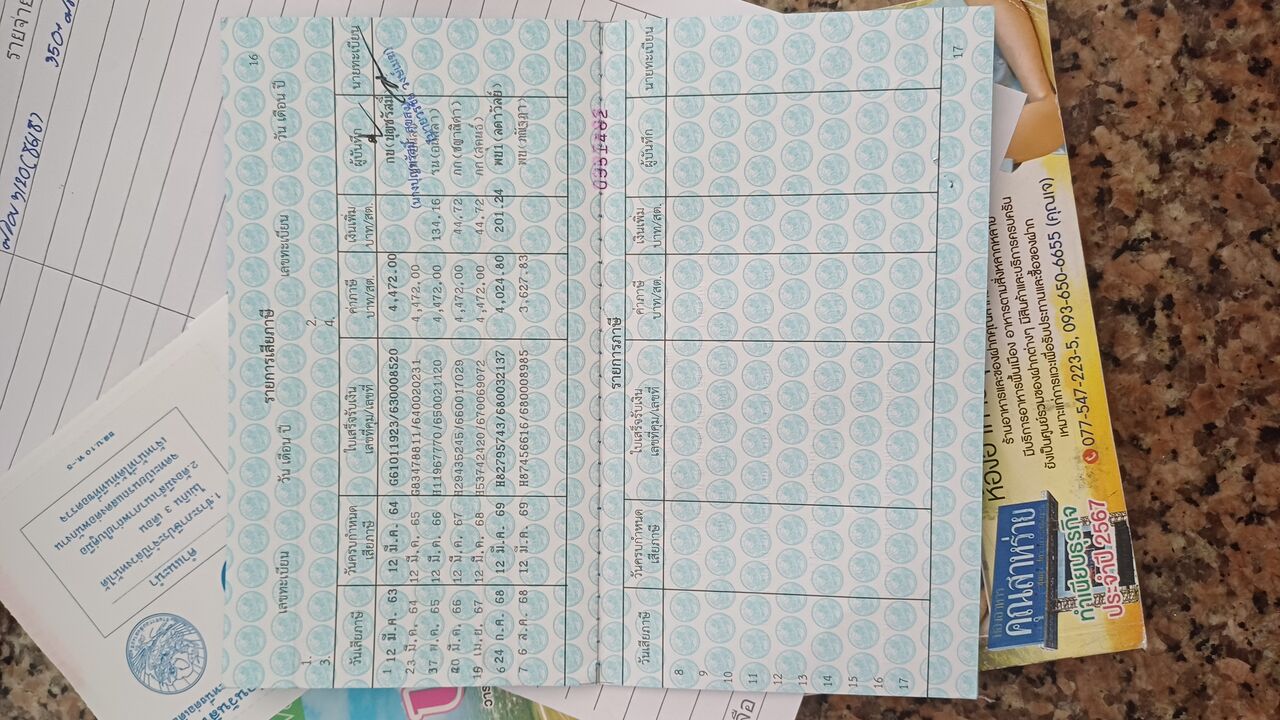 16
รายการเสียภาษี
เลขทะเบียน วัน เดือน ปี เลขทะเบียน วัน เดือน ปี
1. 2.
3. 4.
วันเสียภาษี วันครบกำหนด เสียภาษี ใบเสร็จรับเงิน เลขที่คุม/เลขที่ ค่าภาษี บาท/สต. เงินเพิ่ม บาท/สต. ผู้บันทึก นายทะเบียน
1 12 มี.ค. 63 12 มี.ค. 64 G61011923/630008520 4,472.00
23 มี.ค. 64 12 มี.ค. 65 G83478811/640020231 4,472.00
37 พ.ค. 65 12 มี.ค. 66 H11967770/650021120 4,472.00 134.16
20 มี.ค. 66 12 มี.ค. 67 H29435245/660017029 4,472.00 44.72 ภก(ชญาณิศา)
19 เม.ย. 67 12 มี.ค. 68 H53742420/670069072 4,472.00 44.72
6 24 ก.ค. 68 12 มี.ค. 69 H82795743/680032137 4,024.80 201.24 พย1(ลดาวัลย์)
7 6 ส.ค. 68 12 มี.ค. 69 H87456616/680008985 3,627.83
0351482
รายการภาษี
วันเสียภาษี วันครบกำหนด เสียภาษี ใบเสร็จรับเงิน เลขที่คุม/เลขที่ ค่าภาษี บาท/สต. เงินเพิ่ม บาท/สต. ผู้บันทึก นายทะเบียน
8
9
10
11
12
13
14
15
16
17
17
รายจ่าย
350
คำแนะนำ
ร้านอาหารและของฝากคุณ
มีบริการอาหารพื้นเมือง อาหารตามสั่งหลากหลาย
ยังเป็นศูนย์รวมของฝากต่างๆ มีสินค้าและบริการครบครัน
เหมาะแก่การแวะเพื่อรับประทานและซื้อของฝาก
077-547-223-5, 093-650-6655 (คุณเจ)
คุณสาหร่าย
ทำเนียบธุรกิจ
ประจำปี 2567